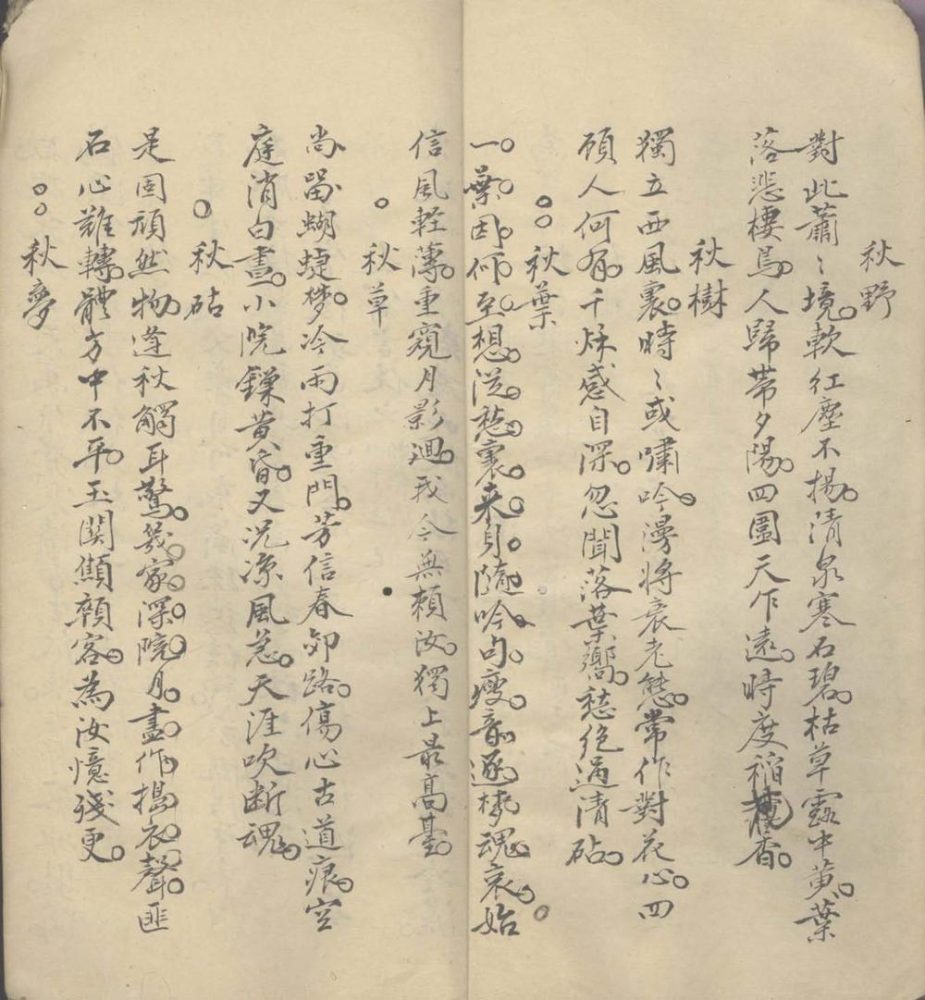 秋野
對此蕭〻境。軟紅塵不揚。清泉寒石碧。枯草露中黃。葉
落悲棲鳥。人歸帶夕陽。四圍天作遠。時度稻香。
秋樹
獨立西風裏。時〻或嘯吟。漫將衰老態。常作對花心。四
顧人何有。千秌感自深。忽聞落葉響。愁絕過清砧。
秋葉
一葉因何至。想從愁裏来。身隨吟句瘦。意逐梦魂哀。始
信風輕薄。重窺月影廻。我今無賴汝。獨上最高臺。
秋草
尚留蝴蝶梦。冷雨打重門。芳信春郊路。傷心古道痕。空
庭消白晝。小院鎖黃昏。又況凉風急。天涯吹断魂。
秋砧
是固頑然物。逢秋觸耳驚。幾家深院月。盡作搗衣聲。匪
石心難轉。體方中不平。玉関顦顇客。為汝憶殘更。
秋夢